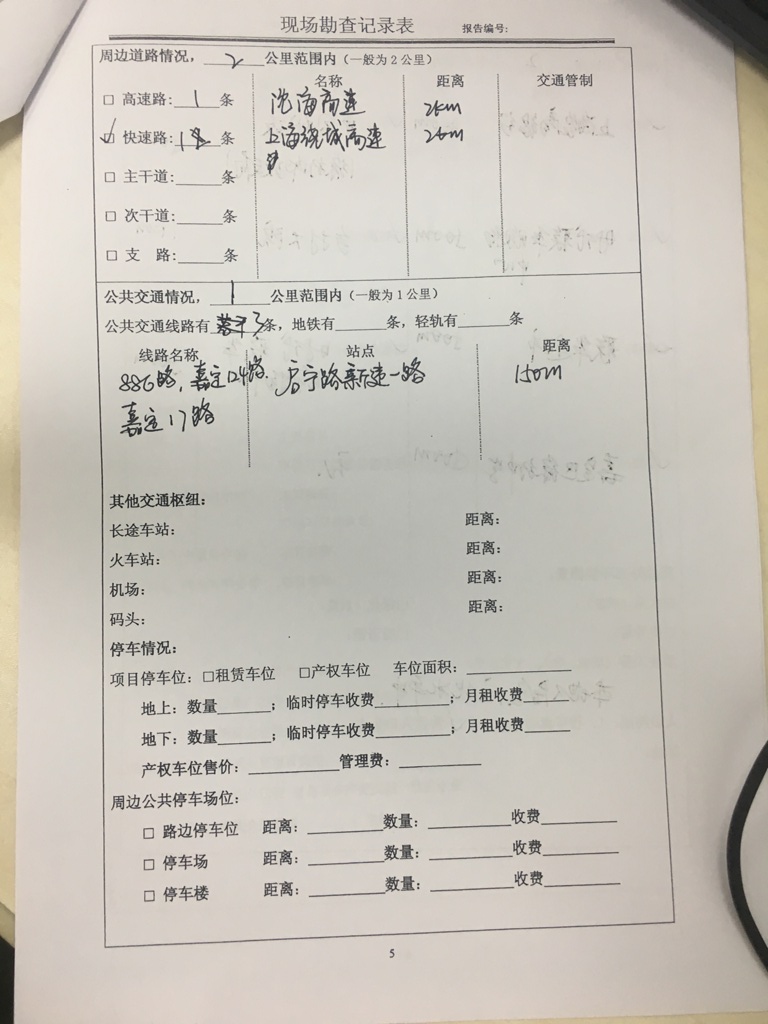 现场勘查记录表 报告编号:
周边道路情况, 2 公里范围内（一般为2公里）
名称 距离 交通管制
□ 高速路: 1 条 沈海高速 2km
☑ 快速路: 1 条 上海绕城高速 2km
□ 主干道:______条
□ 次干道:______条
□ 支 路:______条
公共交通情况, 1 公里范围内（一般为1公里）
公共交通线路有 3 条，地铁有______条，轻轨有______条
线路名称 站点 距离
886路, 嘉定24路. 宁路新建一路 150m
嘉定17路
其他交通枢组:
长途车站: 距离:
火车站: 距离:
机场: 距离:
码头: 距离:
停车情况:
项目停车位: □租赁车位 □产权车位 车位面积:____________
地上: 数量______; 临时停车收费________; 月租收费_____
地下: 数量______; 临时停车收费________; 月租收费_____
产权车位售价: __________管理费: _________
周边公共停车场位:
□ 路边停车位 距离: ________数量: _________收费________
□ 停车场 距离: ________数量: _________收费________
□ 停车楼 距离: ________数量: _________收费________
5